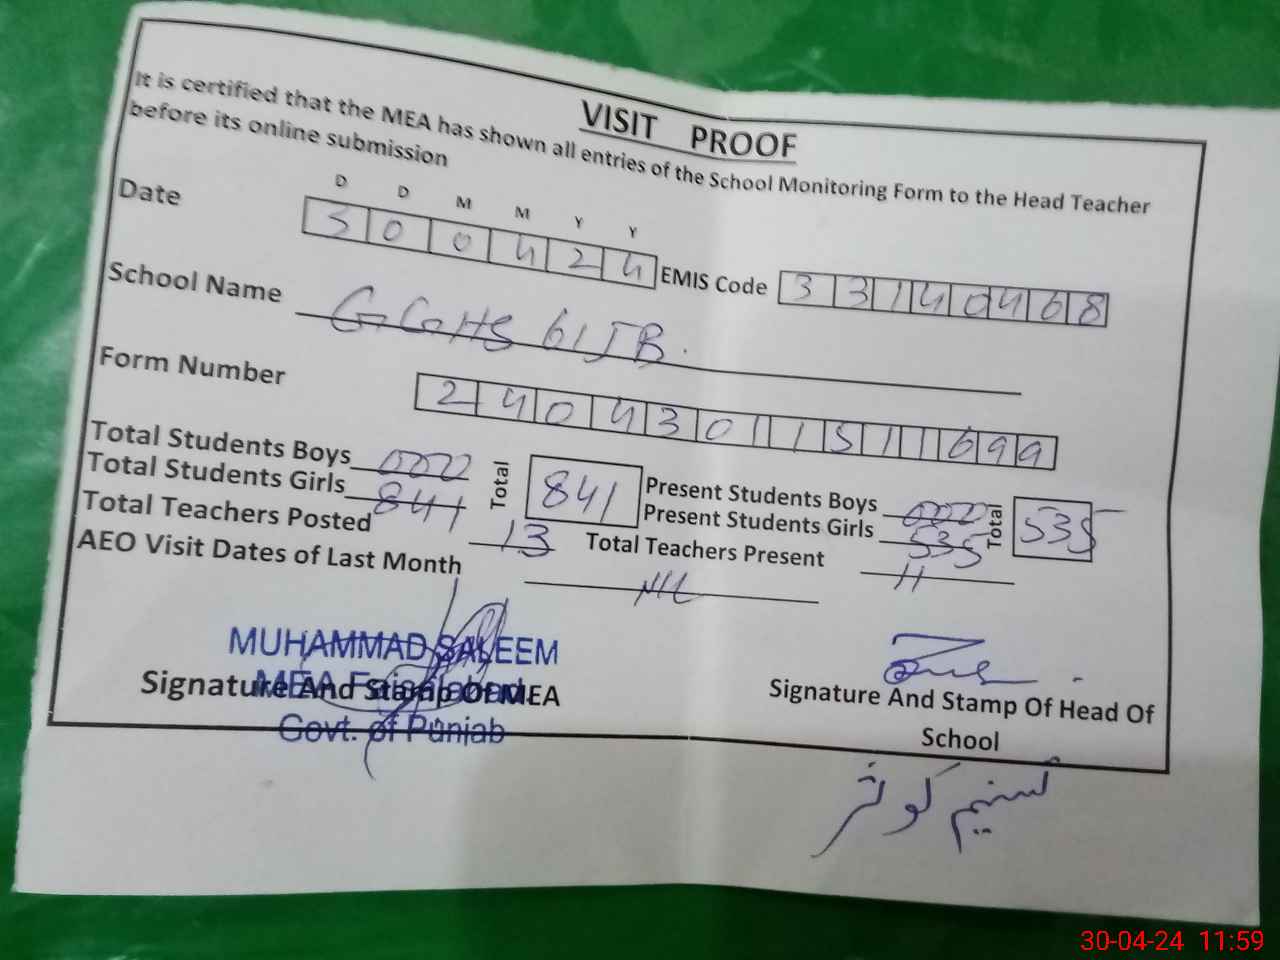 VISIT PROOF
It is certified that the MEA has shown all entries of the School Monitoring Form to the Head Teacher
before its online submission
D D M M Y Y
Date 300424 EMIS Code 33140468
School Name GGHS 61 JB.
Form Number 2404301151699
Total Students Boys 0000
Total Students Girls 841
Total 841
Present Students Boys 000
Present Students Girls 535
Total 535
Total Teachers Posted 13 Total Teachers Present 11
AEO Visit Dates of Last Month NIL
MUHAMMAD SALEEM
MEA Faisalabad
Signature And Stamp Of MEA
Govt. of Punjab
Signature And Stamp Of Head Of
School
تسنیم کوثر
30-04-24 11:59